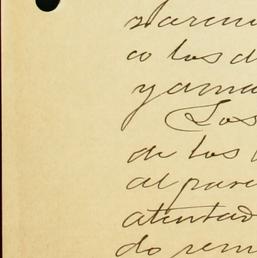 co los d
Los
de los
al pare
atentad
do rem